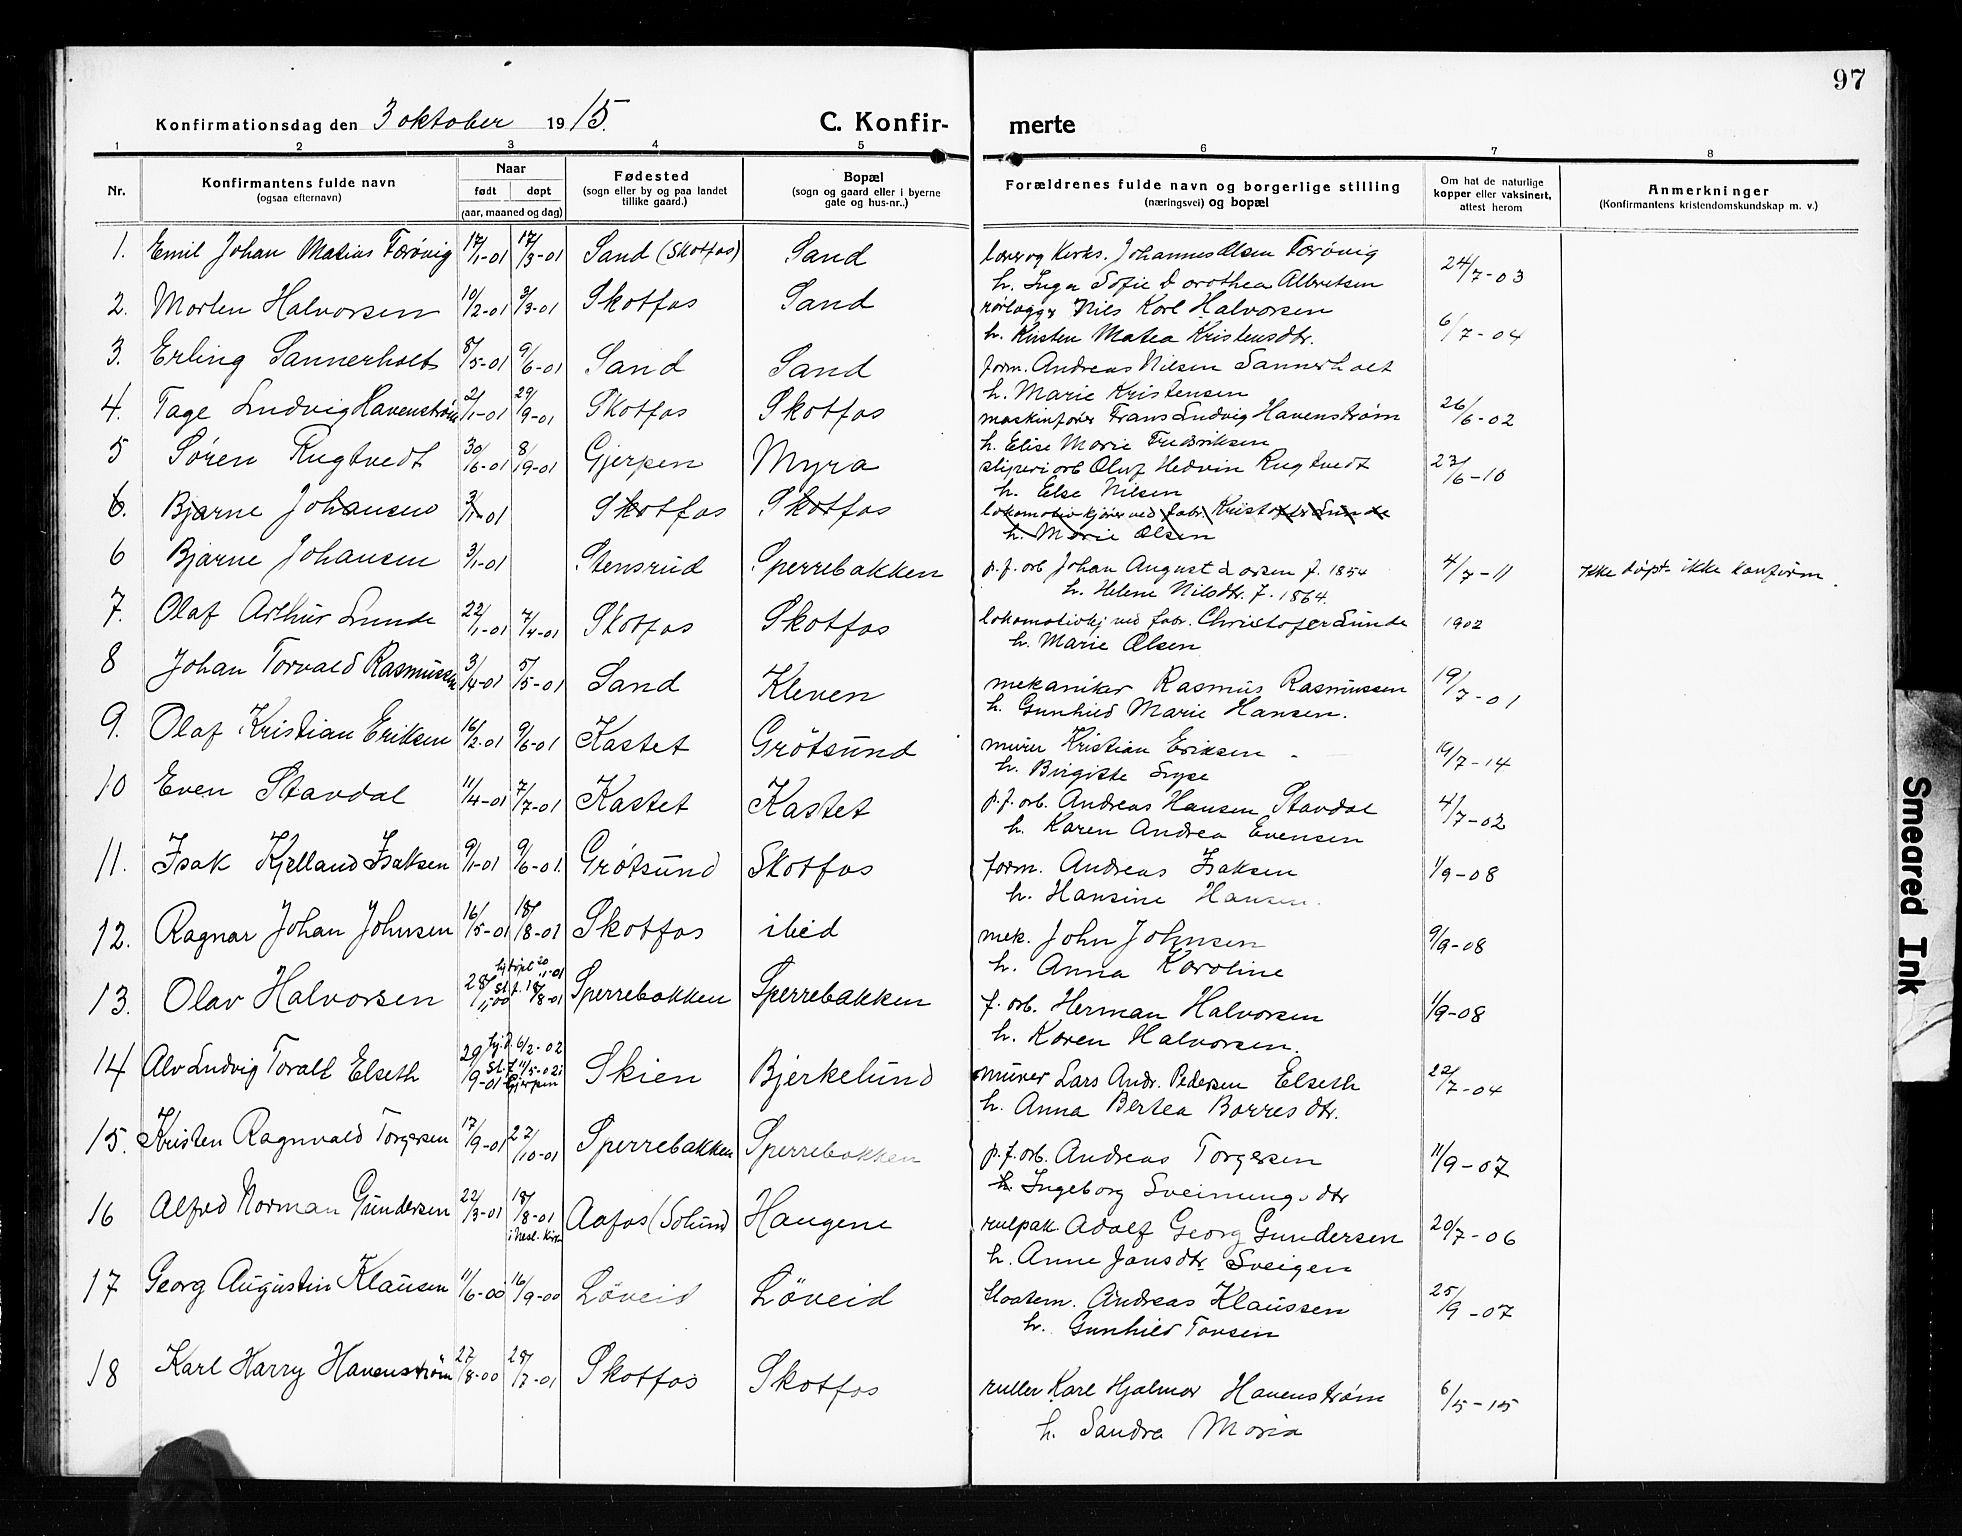 97
Konfirmationsdag den 3 oktober 1915.
C. Konfir-
merte
1 2 3 4 5 6 7 8
Nr.
Konfirmantens fulde navn
(ogsaa efternavn)
Naar
født døpt
(aar, maaned og dag)
Fødested
(sogn eller by og paa landet
tillike gaard.)
Bopæl
(sogn og gaard eller i byerne
gate og hus-nr.,)
Forældrenes fulde navn og borgerlige stilling
(næringsvei) og bopæl
Om hat de naturlige
kopper eller vaksinert,
attest herom
Anmerkninger
(Konfirmantens kristendomskundskap m. v.)
1. Emil Johan Matius Færøvig 17/1-01 17/3-01 Sand (Skotfos) Sand lærer og Kirks. Johannes Olsen Færøvig 24/7-03
h. Inga Sofie Dorothea Albretsen
2. Morten Halvorsen 10/2-01 3/3-01 Skotfos Sand rørlægger Nils Karl Halvorsen 6/7-04
h. Kirsten Matea Kristensdtr.
3. Erling Sannerholt 8/5-01 9/6-01 Sand Sand form. Andreas Nilsen Sannerholt
h. Marie Kristensen
4. Tage Ludvig Havenstrøm 2/1-01 29/9-01 Skotfos Skotfos maskinfører Frans Ludvig Havenstrøm 26/6-02
h. Elise Marie Fredriksen
5 Søren Rugtvedt 30/6-01 8/9-01 Gjerpen Myra sliperiarb Oluf Hedvin Rugtvedt 23/6-10
h. Else Nilsen
6. Bjarne Johansen 3/1-01 Skotfos Skotfos lokomotivkjører ved fabr. Kristoffer Lunde
h. Marie Olsen
6 Bjarne Johansen 3/1-01 Stensrud Sperrebakken p. f. arb Johan August Larsen f. 1854 4/7-11 ikke døpt - ikke konfirm.
h. Helene Nilsdtr. f. 1864.
7. Olaf Arthur Lunde 22/1-01 7/4-01 Skotfos Skotfos lokomotivkj ved fabr. Christofer Lunde 1902
h. Marie Olsen
8 Johan Torvald Rasmussen 3/4-01 5/5-01 Sand Kleven mekaniker Rasmus Rasmussen 19/7-01
h. Gunhild Marie Hansen.
9. Olaf Kristian Eriksen 16/2-01 9/6-01 Kastet Grøtsund murer Kristian Eriksen 19/7-14
h. Birgitte Lype
10 Even Stavdal 11/4-01 7/7-01 Kastet Kastet p. f. arb. Andreas Hansen Stavdal 4/7-02
h. Karen Andrea Evensen
11. Isak Kjelland Isaksen 9/1-01 9/6-01. Grøtsund Skotfos form. Andreas Isaksen 1/9-08
h. Hansine Hansen.
12. Ragnar Johan Johnsen 16/5-01 18/8-01 Skotfos ibid mek. John Johnsen 9/9-08
h. Anna Karoline
13. Olav Halvorsen 28/11-00 hj. døpt 20/1-01 st. f. 18/8-01 Sperrebakken Sperrebakken f. arb. Herman Halvorsen 1/9-08
h. Karen Halvorsen.
14 Alv Ludvig Toralf Elseth 29/9-01 hj. d. 6/2-02 st. f. 11/5-02 i Gjerpen Skien Bjerkelund murer Lars Andr. Pedersen Elseth 22/7-04
h. Anna Bertea Borresdtr.
15. Kristen Ragnvald Torgersen 17/9-01 27/10-01 Sperrebakken Sperrebakken p. f. arb. Andreas Torgersen 11/9-07
h. Ingeborg Sveinungsdtr
16 Alfred Norman Gundersen 22/3-01 18/8-01 i Mesl. Kirke Aafos (Solund) Haugene rulpak. Adolf Georg Gundersen 20/7-06
h. Anne Jansdtr Sveigen
17 Georg Augustin Klausen 11/6-00 16/9-00 Løveid Løveid sloatem. Andreas Klaussen 25/9-07
h. Gunhild Tovsen
18 Karl Harry Havenstrøm 27/8-00 28/7-01 Skotfos Skotfos ruller Karl Hjalmar Havenstrøm 6/5-15
h. Sandra Maria
Smeared Ink